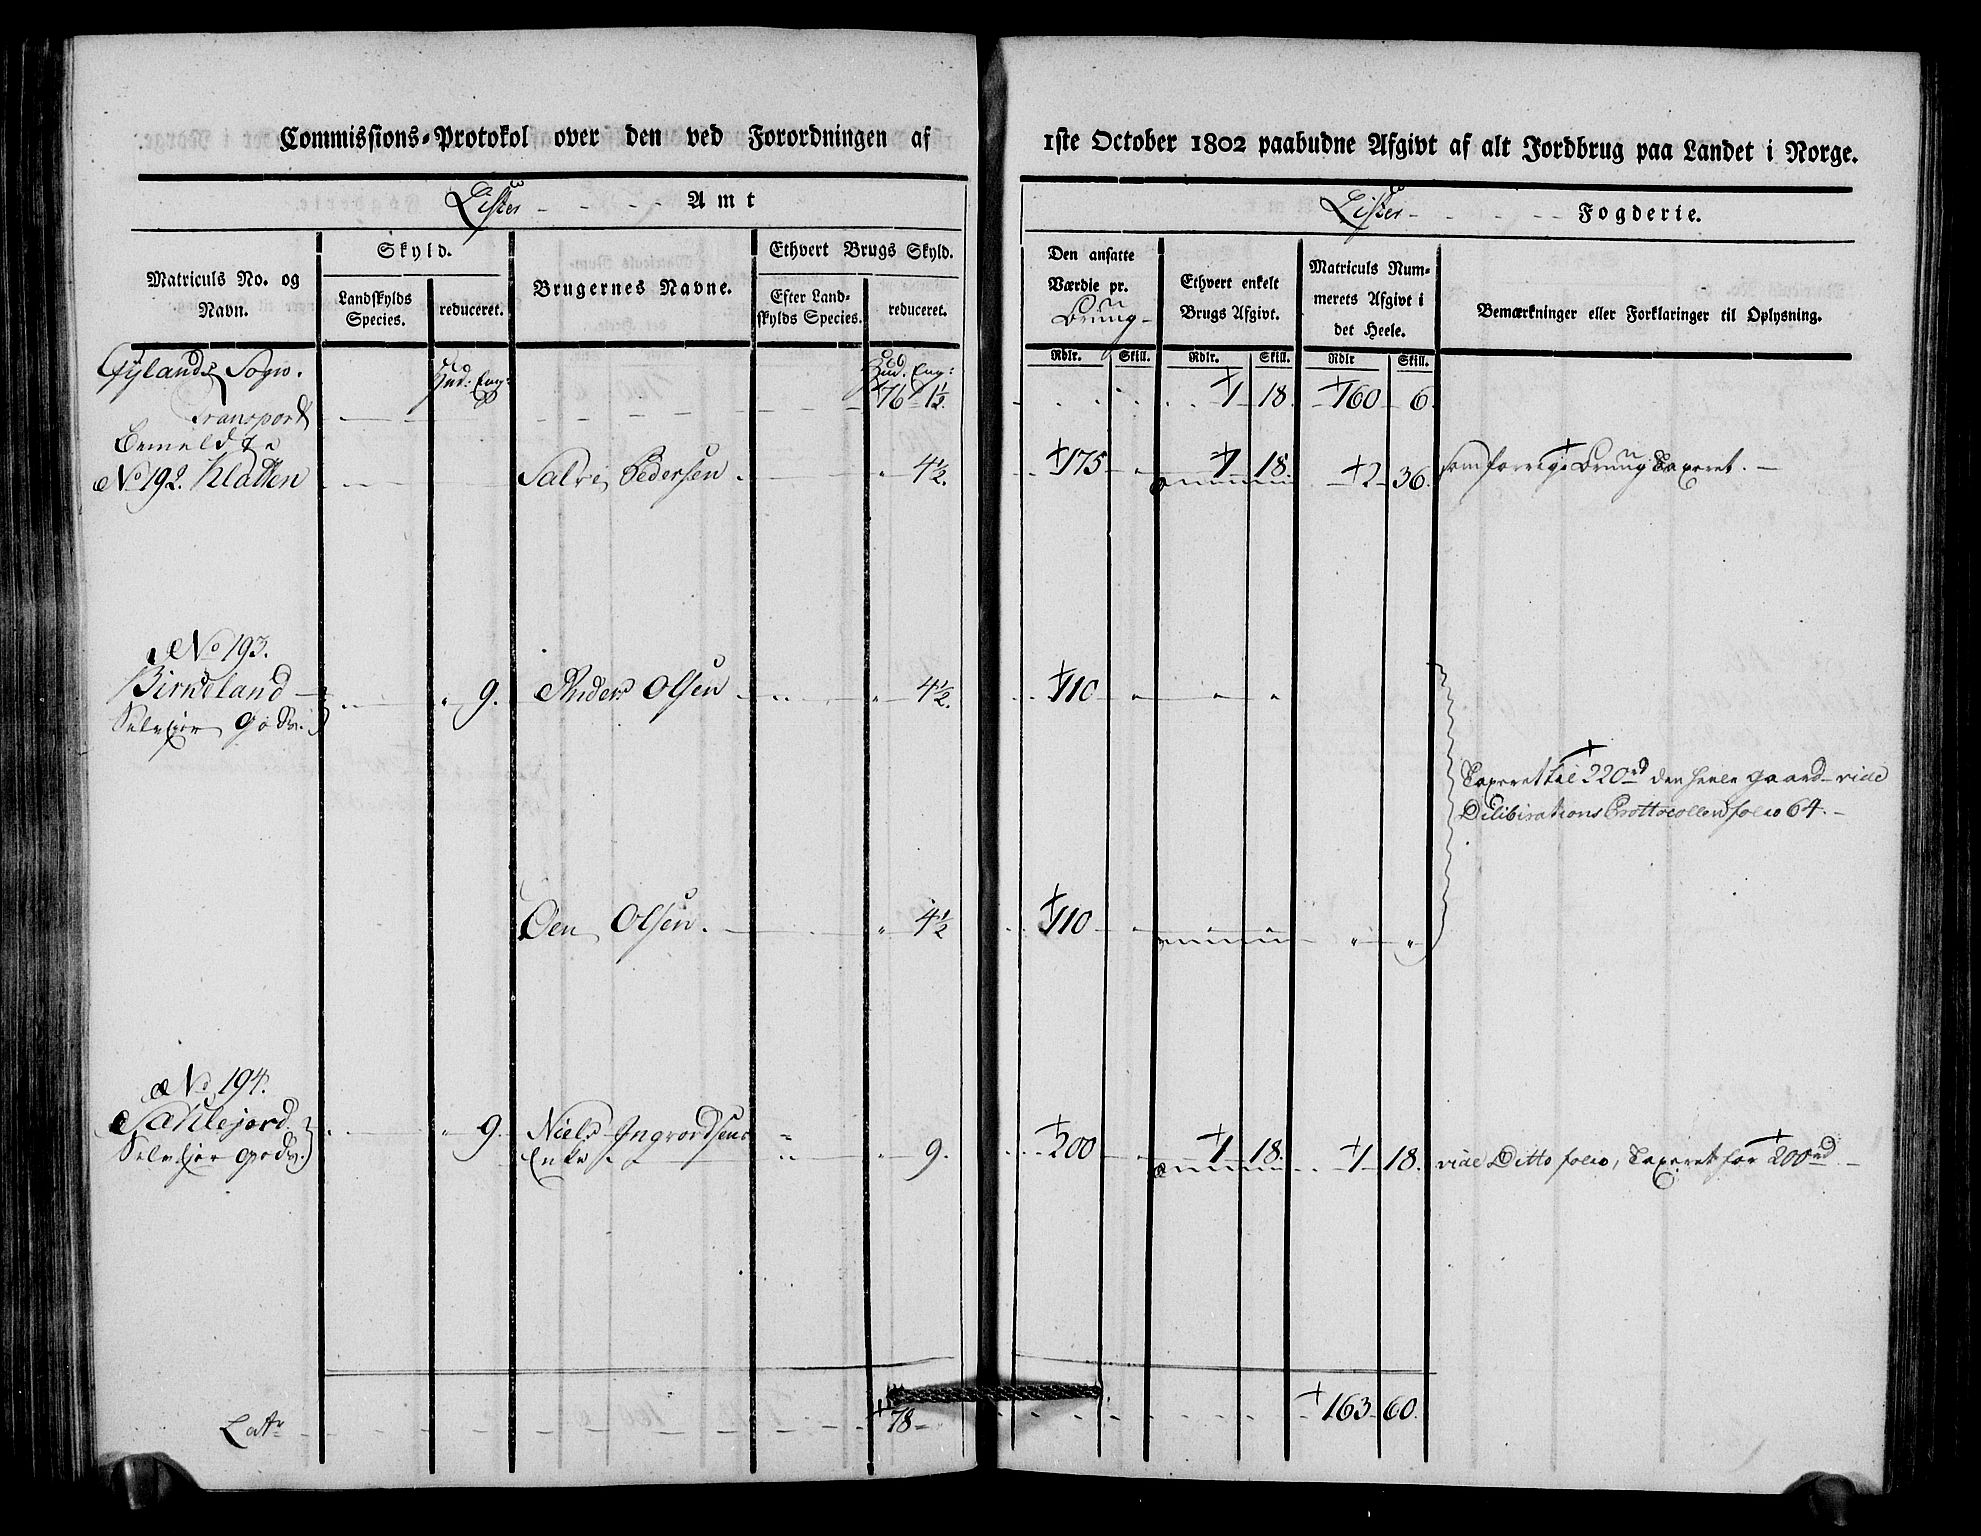 Commissions-Protokol over den ved Forordningen af
1ste October 1802 paabudne Afgivt af alt Jordbrug paa Landet i Norge.
Lister Amt
Lister Fogderie.
Matriculs No. og Navn.
Skyld.
Landskylds Species.
reduceret.
Brugernes Navne.
Ethvert Brugs Skyld.
Efter Landskylds Species.
reduceret.
Den ansatte Værdie pr. Brug
Ethvert enkelt Brugs Afgivt.
Matriculs Nummerets Afgivt i det Heele.
Bemærkninger eller Forklaringer til Oplysning.
Rdlr. Skill. Rdlr. Skill. Rdlr Skill.
Gylands Sogn. Hud: Eng: Hud. Eng:
Transport 76 1½ 1 18. 160 6.
Bemeldte
No 192. Kladden Salvi Pedersen 4½. 175 1 18. 2 36. som forrige Brug Taxeret.
No 193.
Birkeland 9. Anders Olsen 4½. 110
Selveier Gods.
Taxeret til 220rd den heele gaard vide
Dilibirations Prottocollen folio 64.
Oen Olsen. 4½ 110
No 194.
Sählejord 9. Niels Ingvordsens 200 1 18. 1 18. vide Ditto folio, Taxeret for 200rd
Selveier Gods. Enke 9.
Latr 78 163 60.